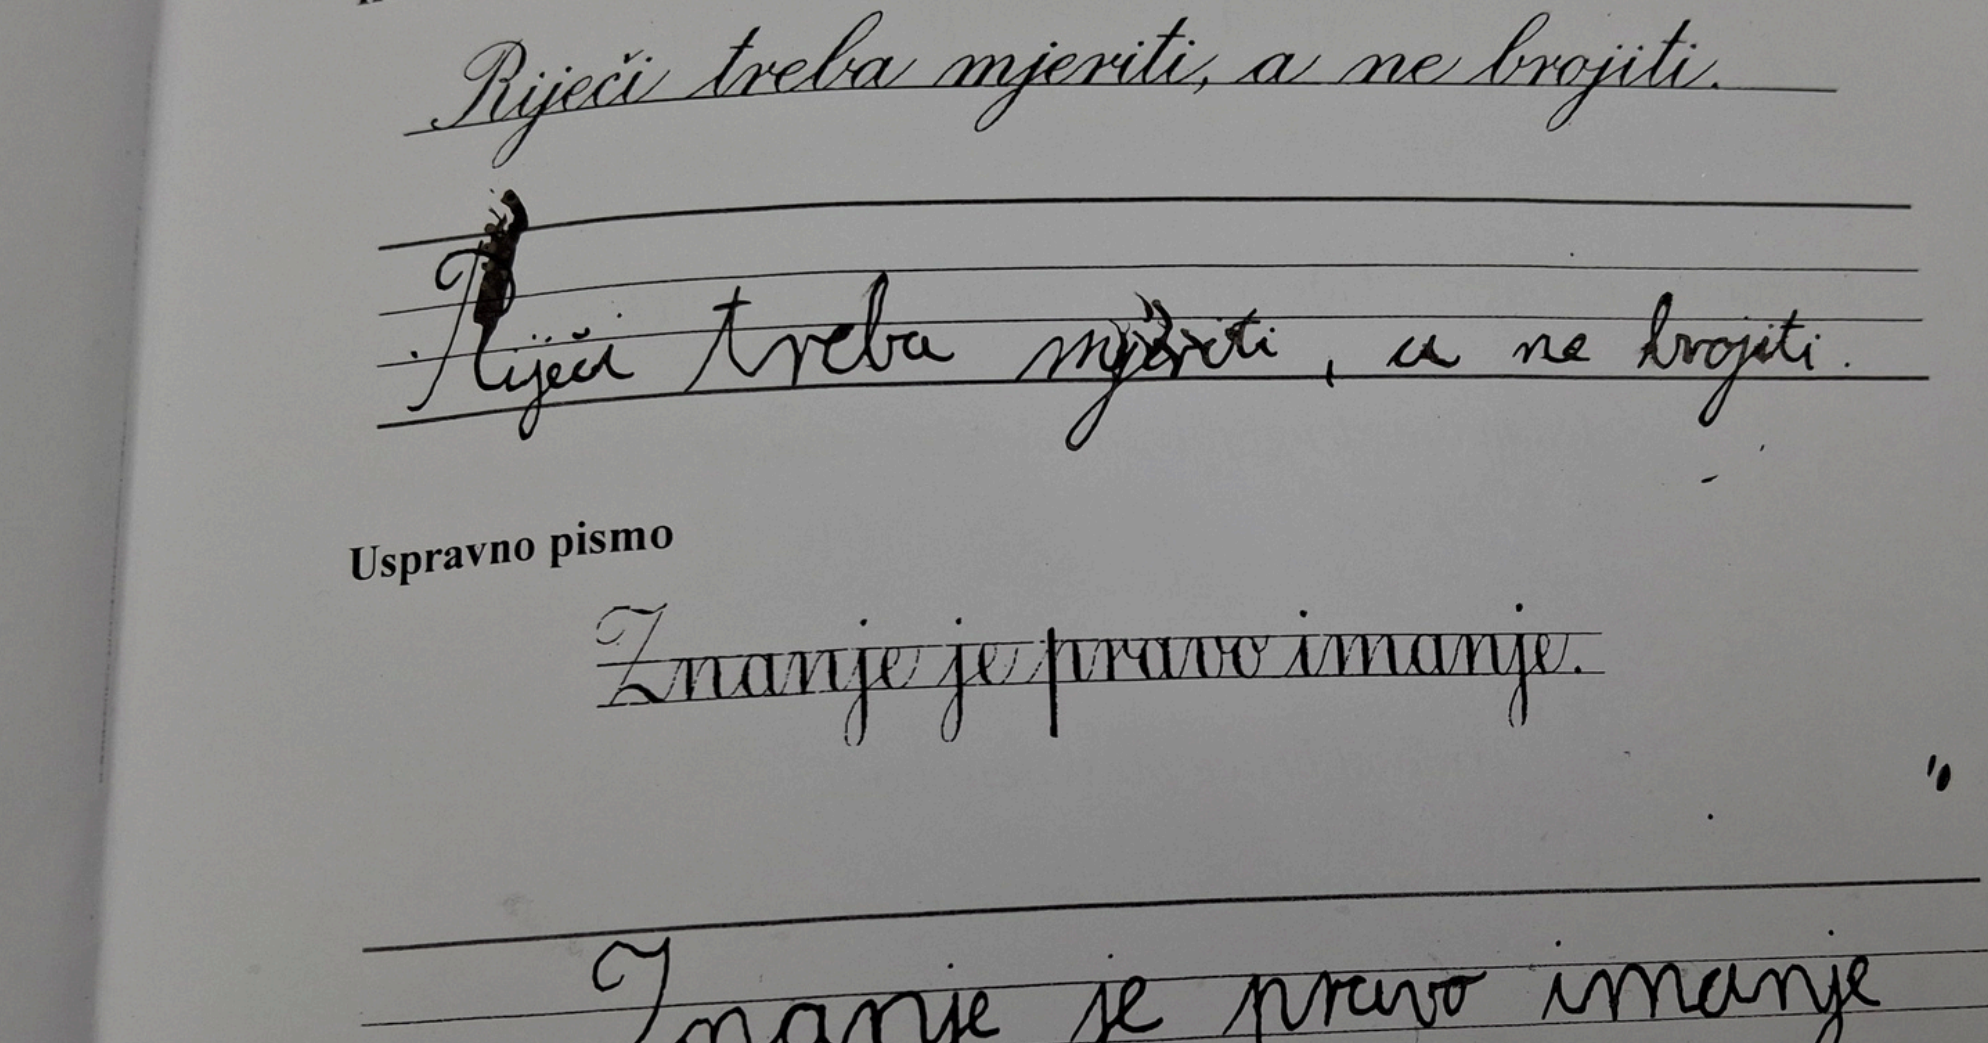 Riječi treba mjeriti, a ne brojiti.
Riječi treba mjeriti, a ne brojiti.
Uspravno pismo
Znanje je pravo imanje.
Znanje je pravo imanje